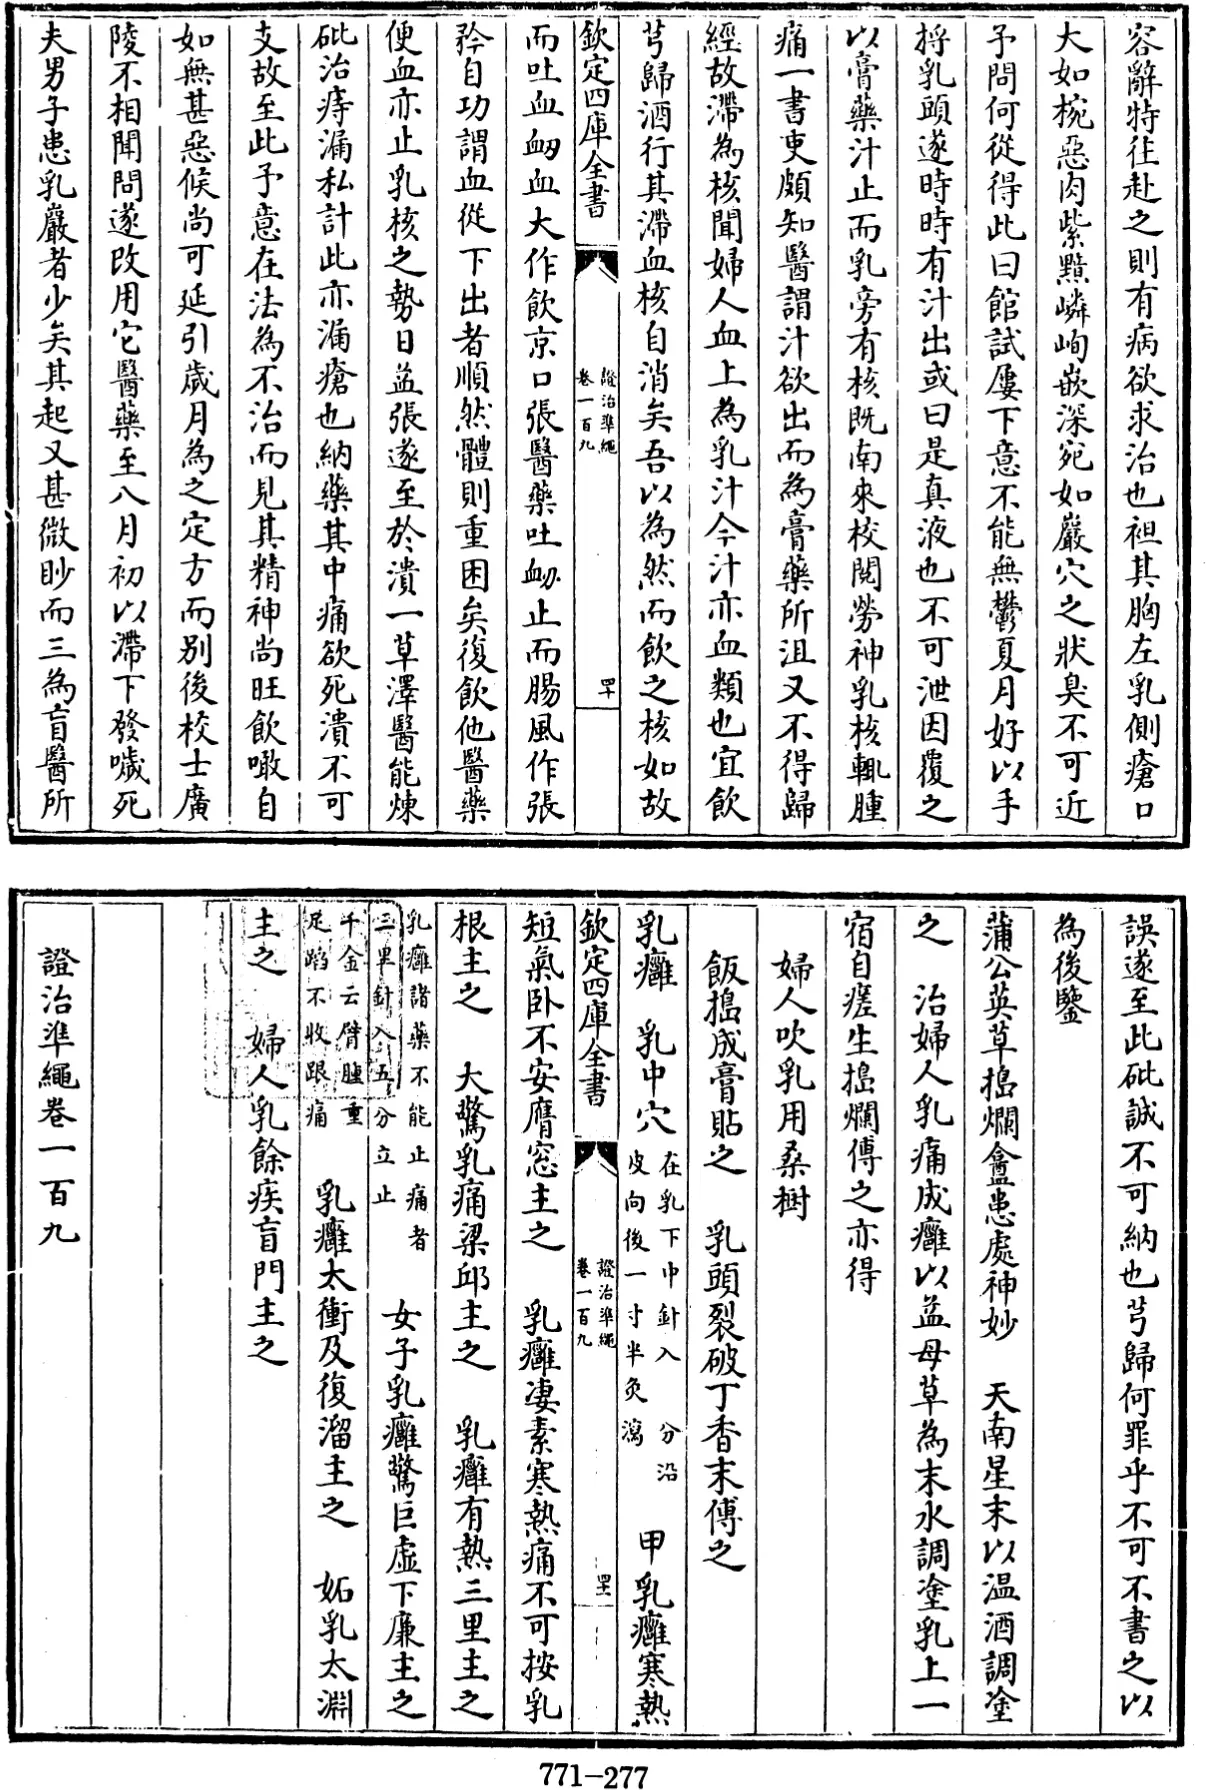 容辭特往赴之則有病欲求治也袒其胸左乳側瘡口
大如椀惡肉紫黯嶙峋嵌深宛如巖穴之狀臭不可近
予問何從得此曰館試屢下意不能無鬱夏月好以手
捋乳頭遂時時有汁出或曰是真液也不可泄因覆之
以膏藥汁止而乳旁有核既南來校閱勞神乳核輒腫
痛一書吏頗知醫謂汁欲出而為膏藥所沮又不得歸
經故滯為核聞婦人血上為乳汁今汁亦血類也宜飲
芎歸酒行其滯血核自消矣吾以為然而飲之核如故
欽定四庫全書
證治準繩
卷一百九
四十
而吐血衂血大作飲京口張醫藥吐衂止而腸風作張
矜自功謂血從下出者順然體則重困矣復飲他醫藥
便血亦止乳核之勢日益張遂至於潰一草澤醫能煉
砒治痔漏私計此亦漏瘡也納藥其中痛欲死潰不可
支故至此予意在法為不治而見其精神尚旺飲噉自
如無甚惡候尚可延引歲月為之定方而別後校士廣
陵不相聞問遂改用它醫藥至八月初以滯下發噦死
夫男子患乳巖者少矣其起又甚微眇而三為盲醫所
誤遂至此砒誠不可納也芎歸何罪乎不可不書之以
為後鑒
蒲公英草搗爛盦患處神妙　天南星末以温酒調塗
之　治婦人乳痛成癰以益母草為末水調塗乳上一
宿自瘥生搗爛傅之亦得
婦人吹乳用桑樹
飯搗成膏貼之　乳頭裂破丁香末傅之
乳癰　乳中穴在乳下中針入　分沿
皮向後一寸半灸瀉　甲乳癰寒熱
欽定四庫全書
證治準繩
卷一百九
四十一
短氣卧不安膺窓主之　乳癰凄索寒熱痛不可按乳
根主之　大驚乳痛梁邱主之　乳癰有熱三里主之
乳癰諸藥不能止痛者
三里針入五分立止　女子乳癰驚巨虚下廉主之
千金云臂腫重
足跗不收跟痛　乳癰太衝及復溜主之　妬乳太淵
主之　婦人乳餘疾肓門主之
證治準繩卷一百九
771-277